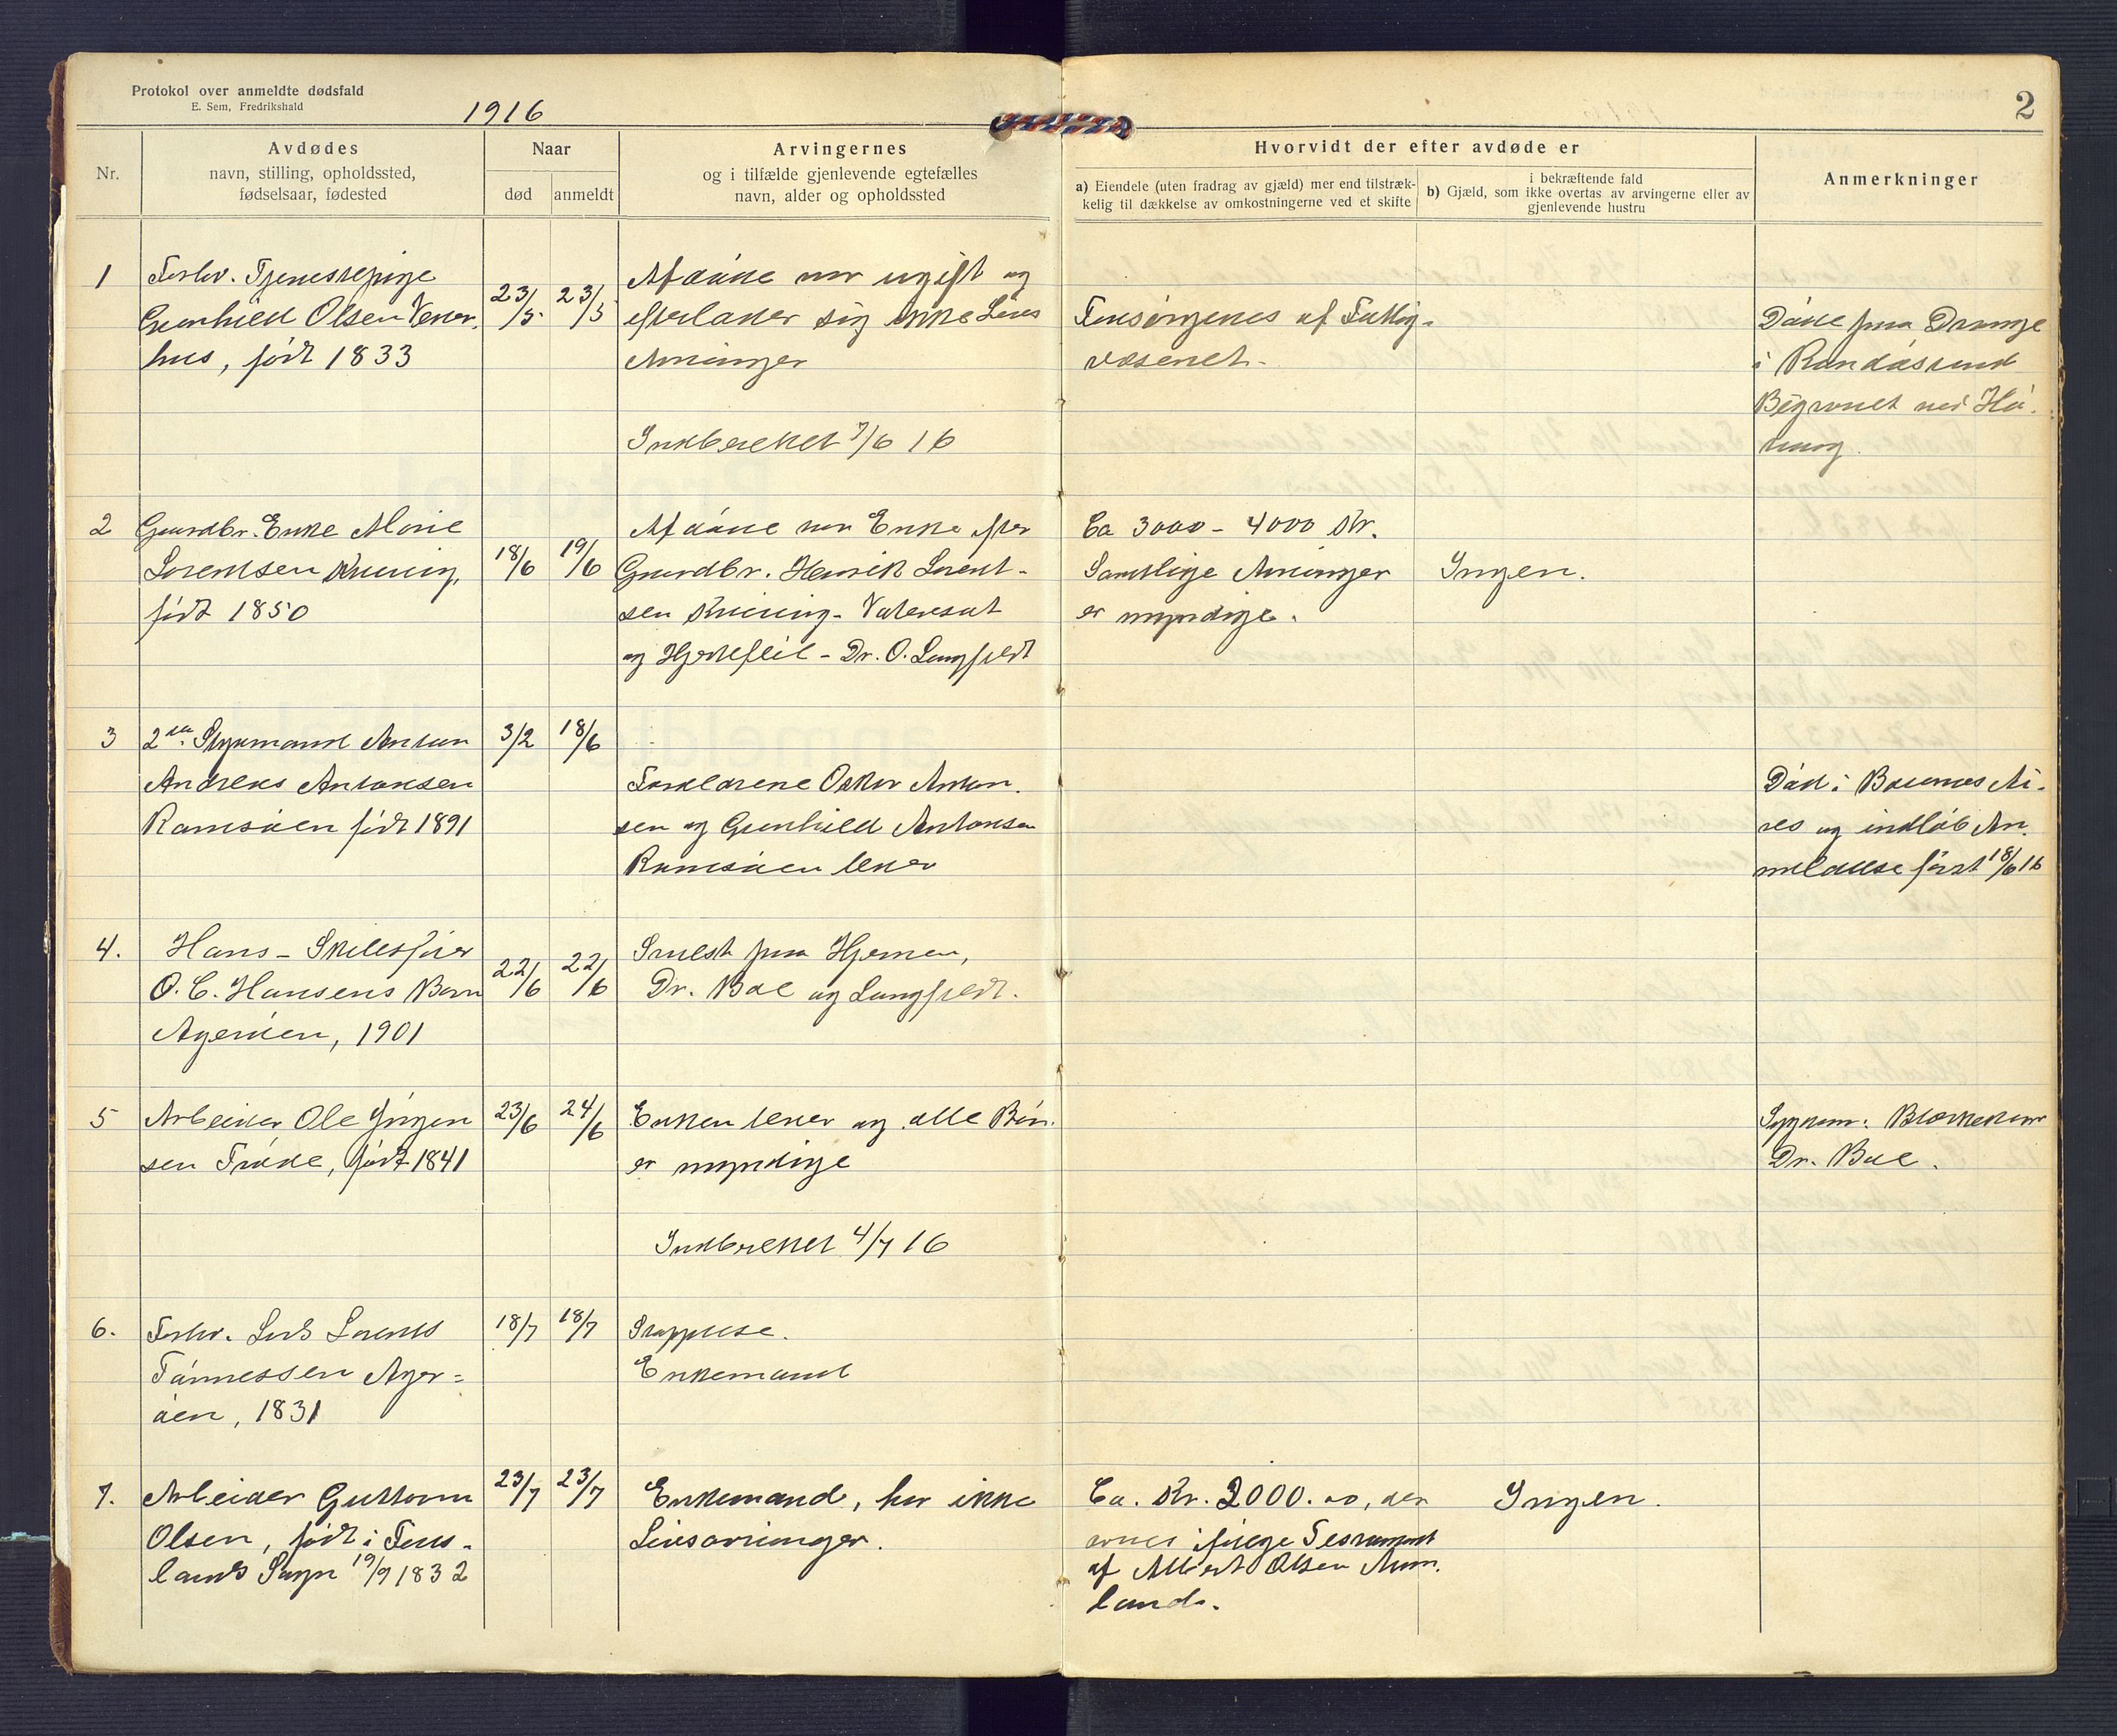 Protokol over anmeldte dødsfald
E. Sem, Fredrikshald
1916
2
Nr.
Avdødes
navn, stilling, opholdssted,
fødselsaar, fødested
Naar
død
anmeldt
Arvingernes
og i tilfælde gjenlevende egtefælles
navn, alder og opholdssted
Hvorvidt der efter avdøde er
a) Eiendele (uten fradrag av gjæld) mer end tilstræk-
kelig til dækkelse av omkostningerne ved et skifte
i bekræftende fald
b) Gjæld, som ikke overtas av arvingerne eller av
gjenlevende hustru
Anmerkninger
1
Forhv. Tjenestepige
Gunhild Olsen
hus, født 1833
23/5
23/5
Afdøde var ugift og
efterlader sig ikke Livs
Arvinger
Indberettet 7/6 16
Forsørgedes af Fattig-
væsenet.
Døde paa Drange
i Randøsund
Begravet ved Hø-
vaag.
2
Gaardbr. Enke Marie
Lorentsen
født 1850
18/6
19/6
Afdøde var Enke efter
Gaardbr. Henrik Lorent-
sen
og Hjertefeil - Dr. O. Langfeldt
Ca 3000 - 4000 Kr.
Samtlige Arvinger
er myndige.
Ingen.
3
2den Styrmand Anton
Andreas Antonsen
Ramsøen født 1891
3/2
18/6
Forældrene Oskar Anton-
sen og Gunhild Antonsen
Ramsøen lever
Død i Buenos Ai-
res og indløb An-
meldelse først 18/6 16
4.
Hans - Skibsfører
O. C. Hansens Barn
Agerøen, 1901
22/6
22/6
Svulst paa Hjernen,
Dr. Boe og Langfeldt.
5
Arbeider Ole Jörgen
sen Trøde, født 1841
23/6
24/6
Enken lever og alle Børn
er myndige
Indberettet 4/7 16
Sygdom: Blærekatar
Dr. Boe.
6.
Forhv. Lods Lorents
Tønnessen Ager=
øen, 1831
18/7
18/7
Enkemand
7.
Arbeider Guttorm
Olsen, født i
lands Sogn 19/9 1832
23/7
23/7
Enkemand, har ikke
Livsarvinger.
Ca. Kr. 2000.00, der
arves ifølge Testament
af Albert Olsen
land.
Ingen.